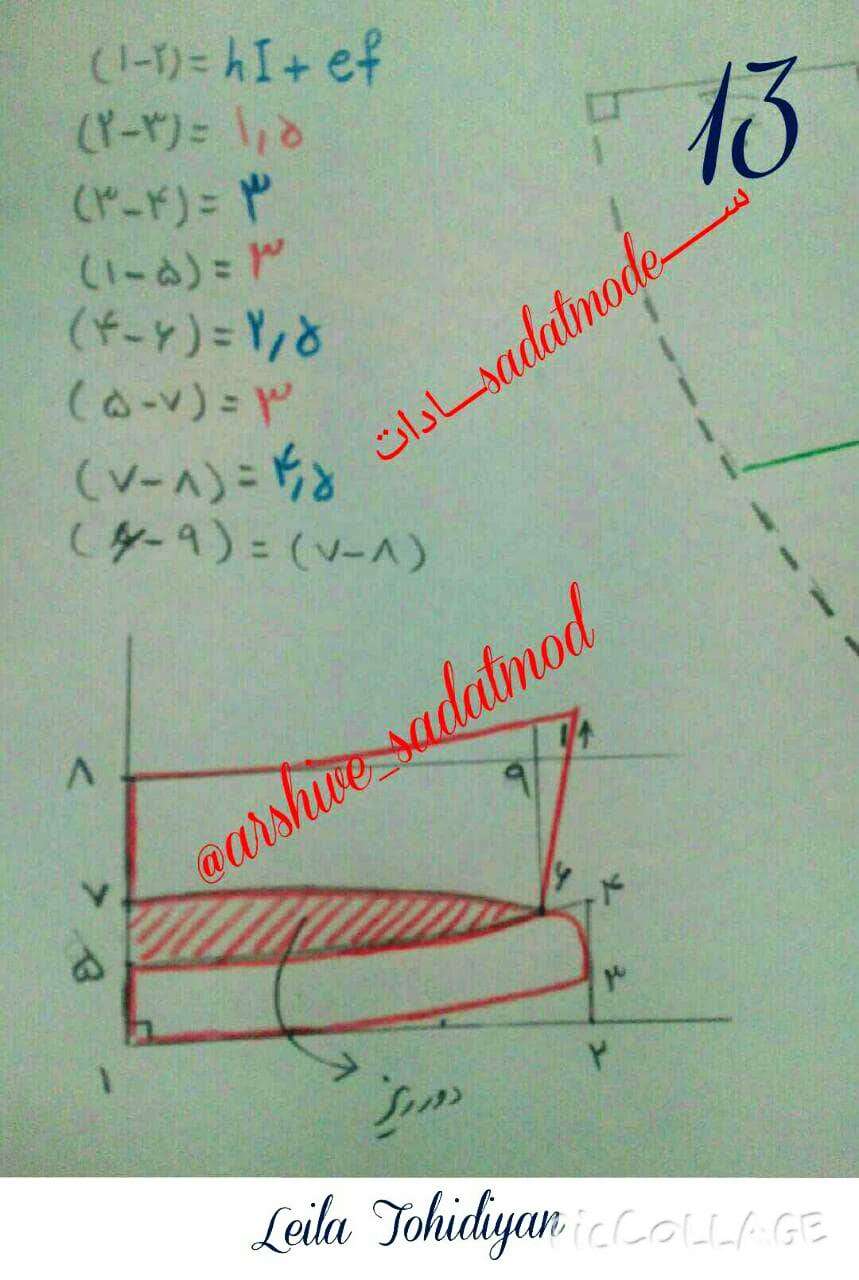 (۱-۲) = hI + ef
13
(۲-۳) = ۱,۵
(۳-۴) = ۳
(۱-۵) = ۳
(۴-۶) = ۲,۵
(۵-۷) = ۳
(۷-۸) = ۴,۵
(۶-۹) = (۷-۸)
ســـاداتsadatmodeســـ
@arshive_sadatmod
۸
۹
۱↑
۷
۶
۴
۵
۳
۱
۲
دورریز
Leila Tohidiyan
PicCOLLAGE